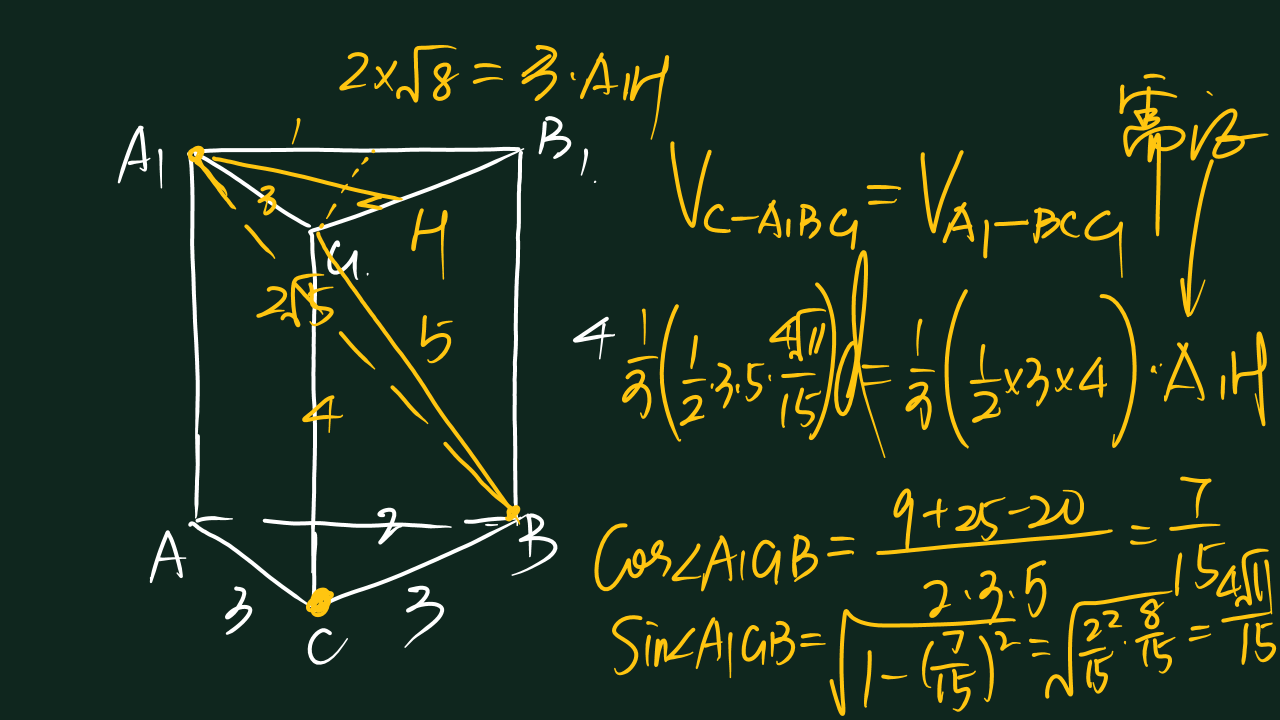 2×√8 = 3·A₁H
A₁
1
B₁
3
H
C₁
2√5
5
4
A
2
B
3
3
C
需证
V_{C-A₁BC₁} = V_{A₁-BCC₁}
4
1/3(1/2·3·5·4√11/15)d = 1/3(1/2×3×4)·A₁H
Cos∠A₁C₁B = (9+25-20)/(2·3·5) = 7/15
Sin∠A₁C₁B = √(1-(7/15)²) = √(22/15·8/15) = 4√11/15